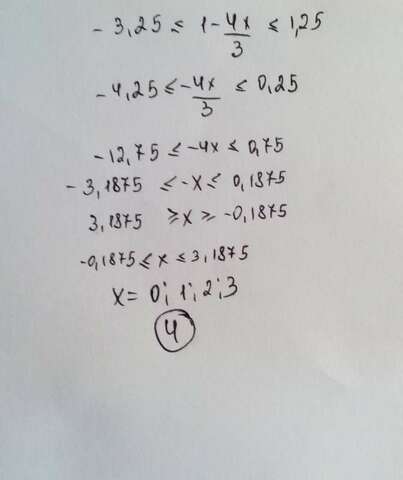 - 3,25 ≤ 1 - 4x/3 ≤ 1,25
- 4,25 ≤ - 4x/3 ≤ 0,25
- 12,75 ≤ -4x ≤ 0,75
- 3,1875 ≤ -x ≤ 0,1875
3,1875 ≥ x ≥ -0,1875
-0,1875 ≤ x ≤ 3,1875
x = 0; 1; 2; 3
4